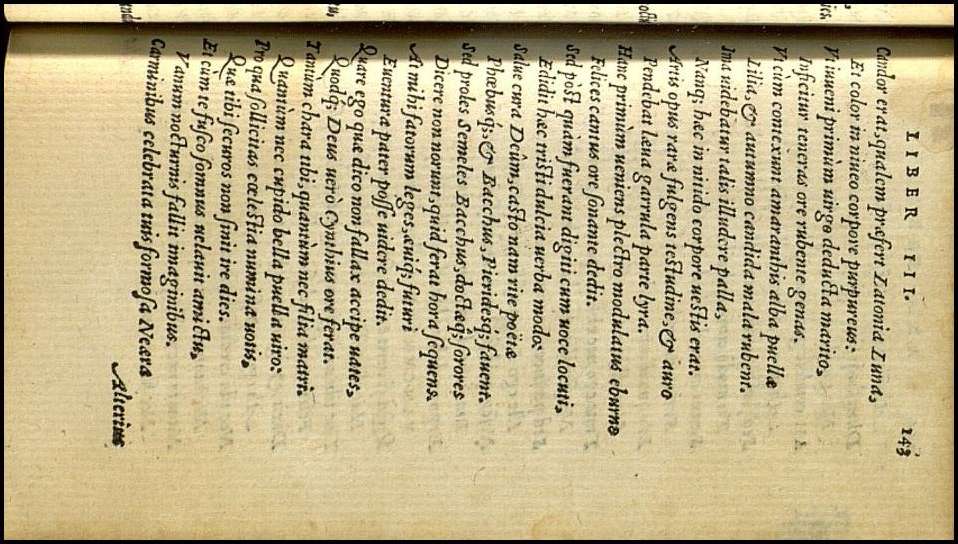 LIBER III. 143
Candor erat, qualem præfert Latonia Luna,
Et color in niueo corpore purpureus:
Vt iuueni primùm uirgo deducta marito,
Inficitur teneras ore rubente genas.
Vt cum contexunt amaranthis alba puellæ
Lilia, & autumno candida mala rubent.
Ima uidebatur talis illudere palla,
Nanq; hæc in nitido corpore uestis erat.
Artis opus raræ fulgens testudine, & auro
Pendebat læua garrula parte lyra.
Hanc primùm ueniens plectro modulatus eburno
Felices cantus ore sonante dedit.
Sed pòst quàm fuerant digiti cum uoce locuti,
Edidit hæc tristi dulcia uerba modo:
Salue cura Deûm, casto nam rite poëtæ
Phebusq;, & Bacchus, Pieridesq; fauent.
Sed proles Semeles Bacchus, doctæq́; sorores
Dicere non norunt, quid ferat hora sequens.
At mihi fatorum leges, æuiq́; futuri
Euentura pater posse uidere dedit.
Quare ego quæ dico non fallax accipe uates,
Quodq́; Deus uerò Cynthius ore ferat.
Tantùm chara tibi, quantùm nec filia matri.
Quantùm nec cupido bella puella uiro:
Pro qua sollicitas cœlestia numina uotis,
Quæ tibi securos non sinit ire dies.
Et cum te fusco somnus uelauit amictu,
Vanum nocturnis fallit imaginibus.
Carminibus celebrata tuis formosa Neæra
Alterius